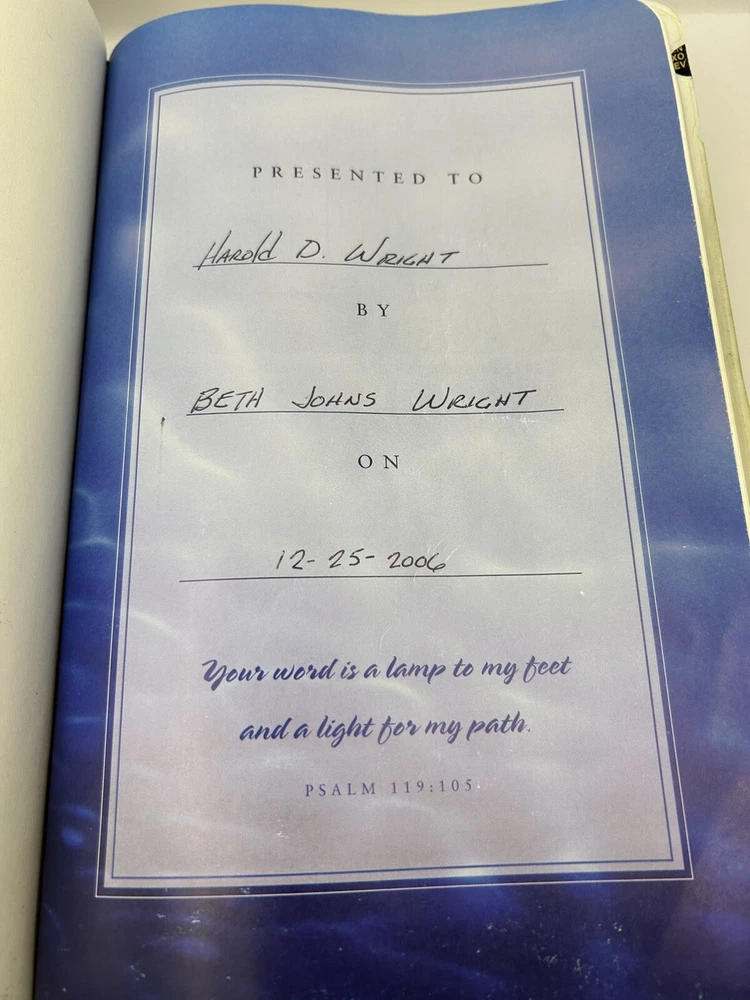 PRESENTED TO
HAROLD D. WRIGHT
BY
BETH JOHNS WRIGHT
ON
12-25-2006
Your word is a lamp to my feet
and a light for my path.
PSALM 119:105
XO
EV